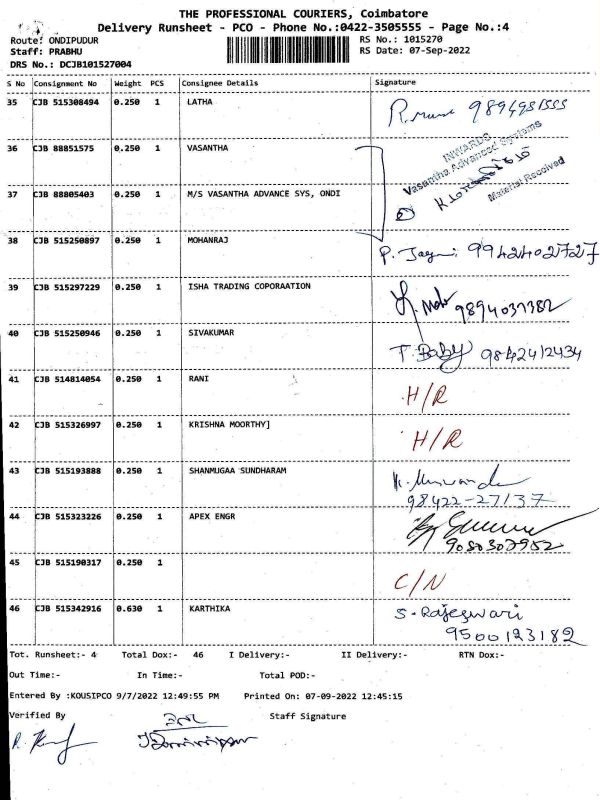 THE PROFESSIONAL COURIERS, Coimbatore
Delivery Runsheet - PCO - Phone No.:0422-3505555 - Page No.:4
Route: ONDIPUDUR
Staff: PRABHU
DRS No.: DCJB101527004
RS No.: 1015270
RS Date: 07-Sep-2022
S No Consignment No Weight PCS Consignee Details Signature
35 CJB 515308494 0.250 1 LATHA
36 CJB 88851575 0.250 1 VASANTHA
INWARDS
Vasantha Advanced Systems
Material Received
37 CJB 88805403 0.250 1 M/S VASANTHA ADVANCE SYS, ONDI
38 CJB 515250897 0.250 1 MOHANRAJ 9942402727
39 CJB 515297229 0.250 1 ISHA TRADING COPORAATION 9894037382
40 CJB 515250946 0.250 1 SIVAKUMAR T. Baby 9842412434
41 CJB 514814054 0.250 1 RANI H/R
42 CJB 515326997 0.250 1 KRISHNA MOORTHY] H/R
43 CJB 515193888 0.250 1 SHANMUGAA SUNDHARAM
98422-27137
44 CJB 515323226 0.250 1 APEX ENGR
9080307952
45 CJB 515190317 0.250 1 C/N
46 CJB 515342916 0.630 1 KARTHIKA S. Rajeswari
9500123182
Tot. Runsheet:- 4 Total Dox:- 46 I Delivery:- II Delivery:- RTN Dox:-
Out Time:- In Time:- Total POD:-
Entered By :KOUSIPCO 9/7/2022 12:49:55 PM Printed On: 07-09-2022 12:45:15
Verified By Staff Signature